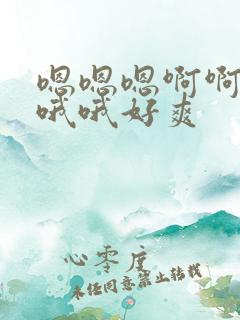 嗯嗯嗯啊啊
哦哦好爽
心零度
未经同意禁止转载